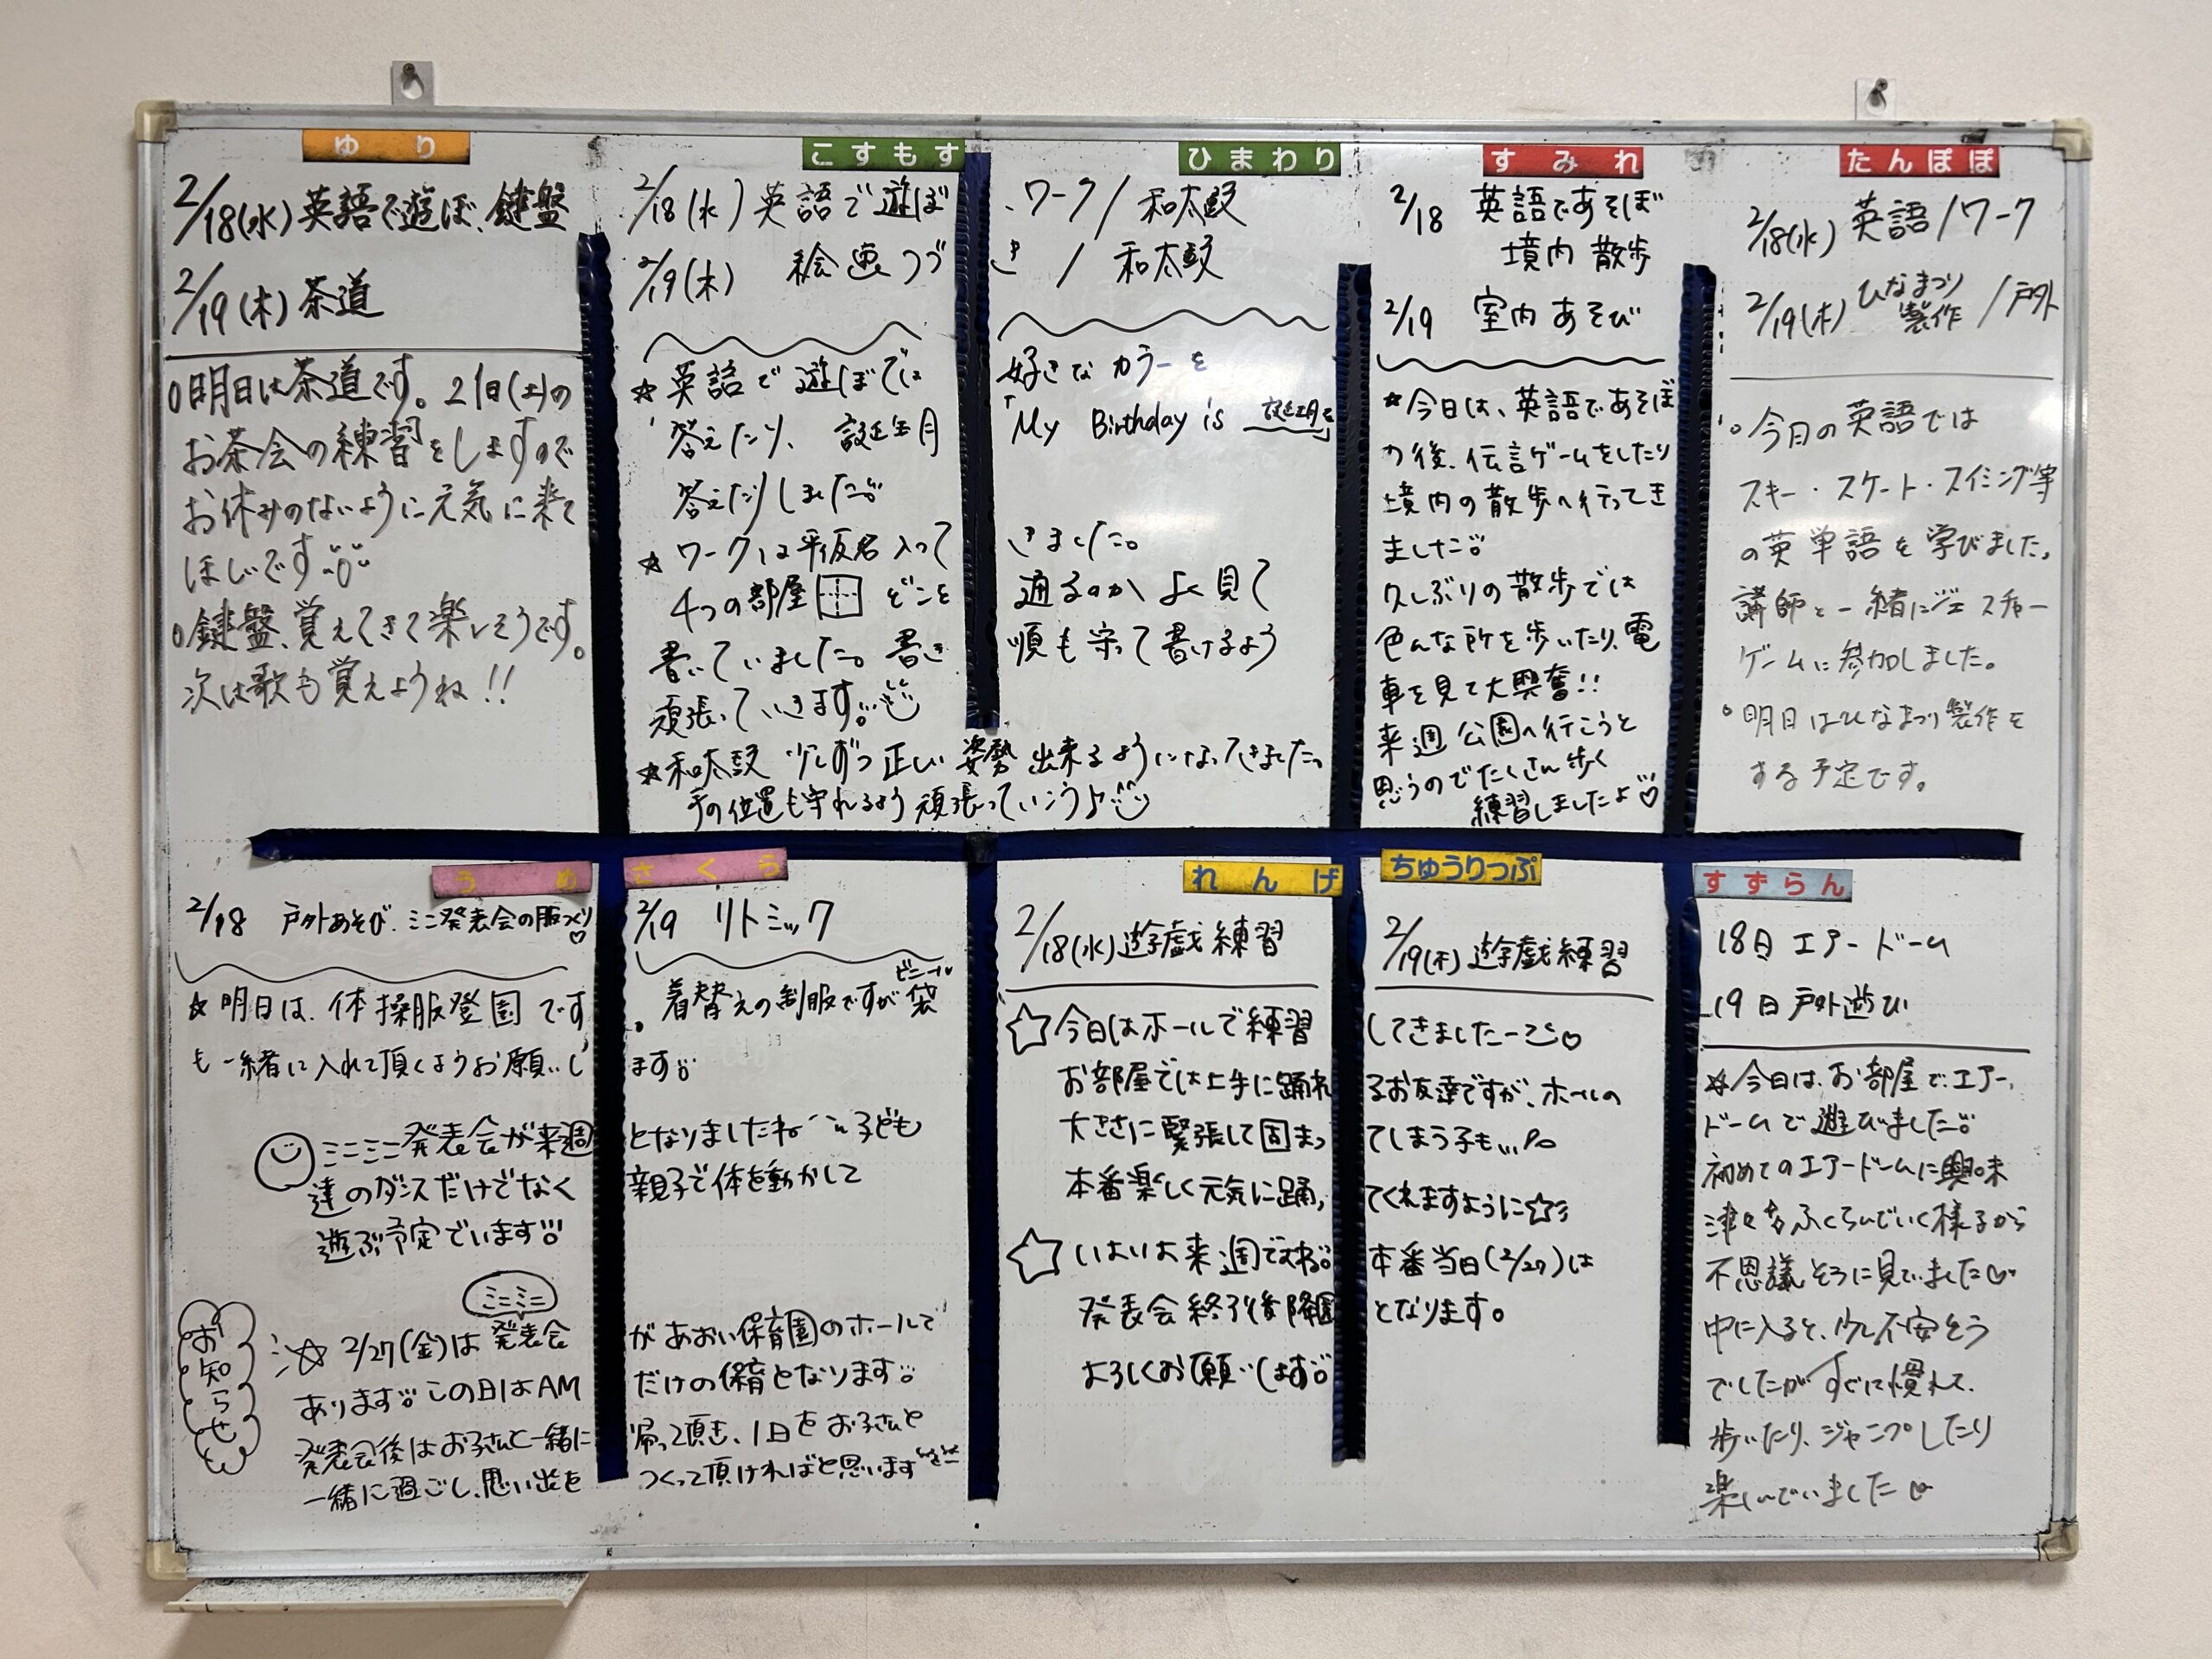 ゆり
2/18(水) 英語で遊ぼ、鍵盤
2/19(木) 茶道
○明日は茶道です。21日(土)の
お茶会の練習をしますので
お休みのないように元気に来て
ほしいです
○鍵盤、覚えてきて楽しそうです。
次は歌も覚えようね!!
こすもす ひまわり
2/18(水) 英語で遊ぼ、ワーク/和太鼓
2/19(木) 絵画つづき / 和太鼓
☆英語で遊ぼでは 好きなカラーを
答えたり、誕生月「My Birthday is 誕生月」を
答えたりしました。
☆ワークは平仮名入って きました。
4つの部屋 どこを 通るのか よく見て
書いていました。書き順も守って書けるよう
頑張っていきます。
☆和太鼓 少しずつ正しい姿勢出来るようになってきましたっ
手の位置も守れるよう頑張っていこう♪
すみれ
2/18 英語であそぼ
境内 散歩
2/19 室内あそび
☆今日は、英語であそぼ
の後、伝言ゲームをしたり
境内の散歩へ行ってき
ました。
久しぶりの散歩では
色んな所を歩いたり、電
車を見て大興奮!!
来週 公園へ行こうと
思うのでたくさん歩く
練習しましたよ♡
たんぽぽ
2/18(水) 英語/ワーク
2/19(木) ひなまつり製作/戸外
○今月の英語では
スキー・スケート・スイミング等
の英単語を学びました。
講師と一緒にジェスチャー
ゲームに参加しました。
○明日はひなまつり製作を
する予定です。
うめ さくら
2/18 戸外あそび、ミニ発表会の服づくり♡ 2/19 リトミック
☆明日は、体操服登園です。着替えの制服ですがビニール袋
も一緒に入れて頂くようお願いします。
ミニミニ発表会が来週となりましたね 子ども
達のダンスだけでなく 親子で体を動かして
遊ぶ予定でいます!!
お知らせ
☆2/27(金)は ミニミニ発表会があおい保育園のホールで
あります。この日はAMだけの保育となります。
発表会後はお子さんと一緒に帰って頂き、1日をお子さんと
一緒に過ごし、思い出をつくって頂ければと思います
れんげ ちゅうりっぷ
2/18(水) 遊戯練習 2/19(木) 遊戯練習
☆今日はホールで練習してきましたー♡
お部屋では上手に踊れるお友達ですが、ホールの
大きさに緊張して固まってしまう子も…
本番楽しく元気に踊ってくれますように☆
☆いよいよ来週ですね。本番当日(2/27)は
発表会終了後降園となります。
よろしくお願いします。
すずらん
18日 エアードーム
19日 戸外遊び
☆今日は、お部屋でエアー
ドームで遊びました。
初めてのエアードームに興味
津々 ふくらんでいく様子から
不思議そうに見ていました♡
中に入ると、少し不安そう
でしたがすぐに慣れて、
歩いたり、ジャンプしたり
楽しんでいました♡